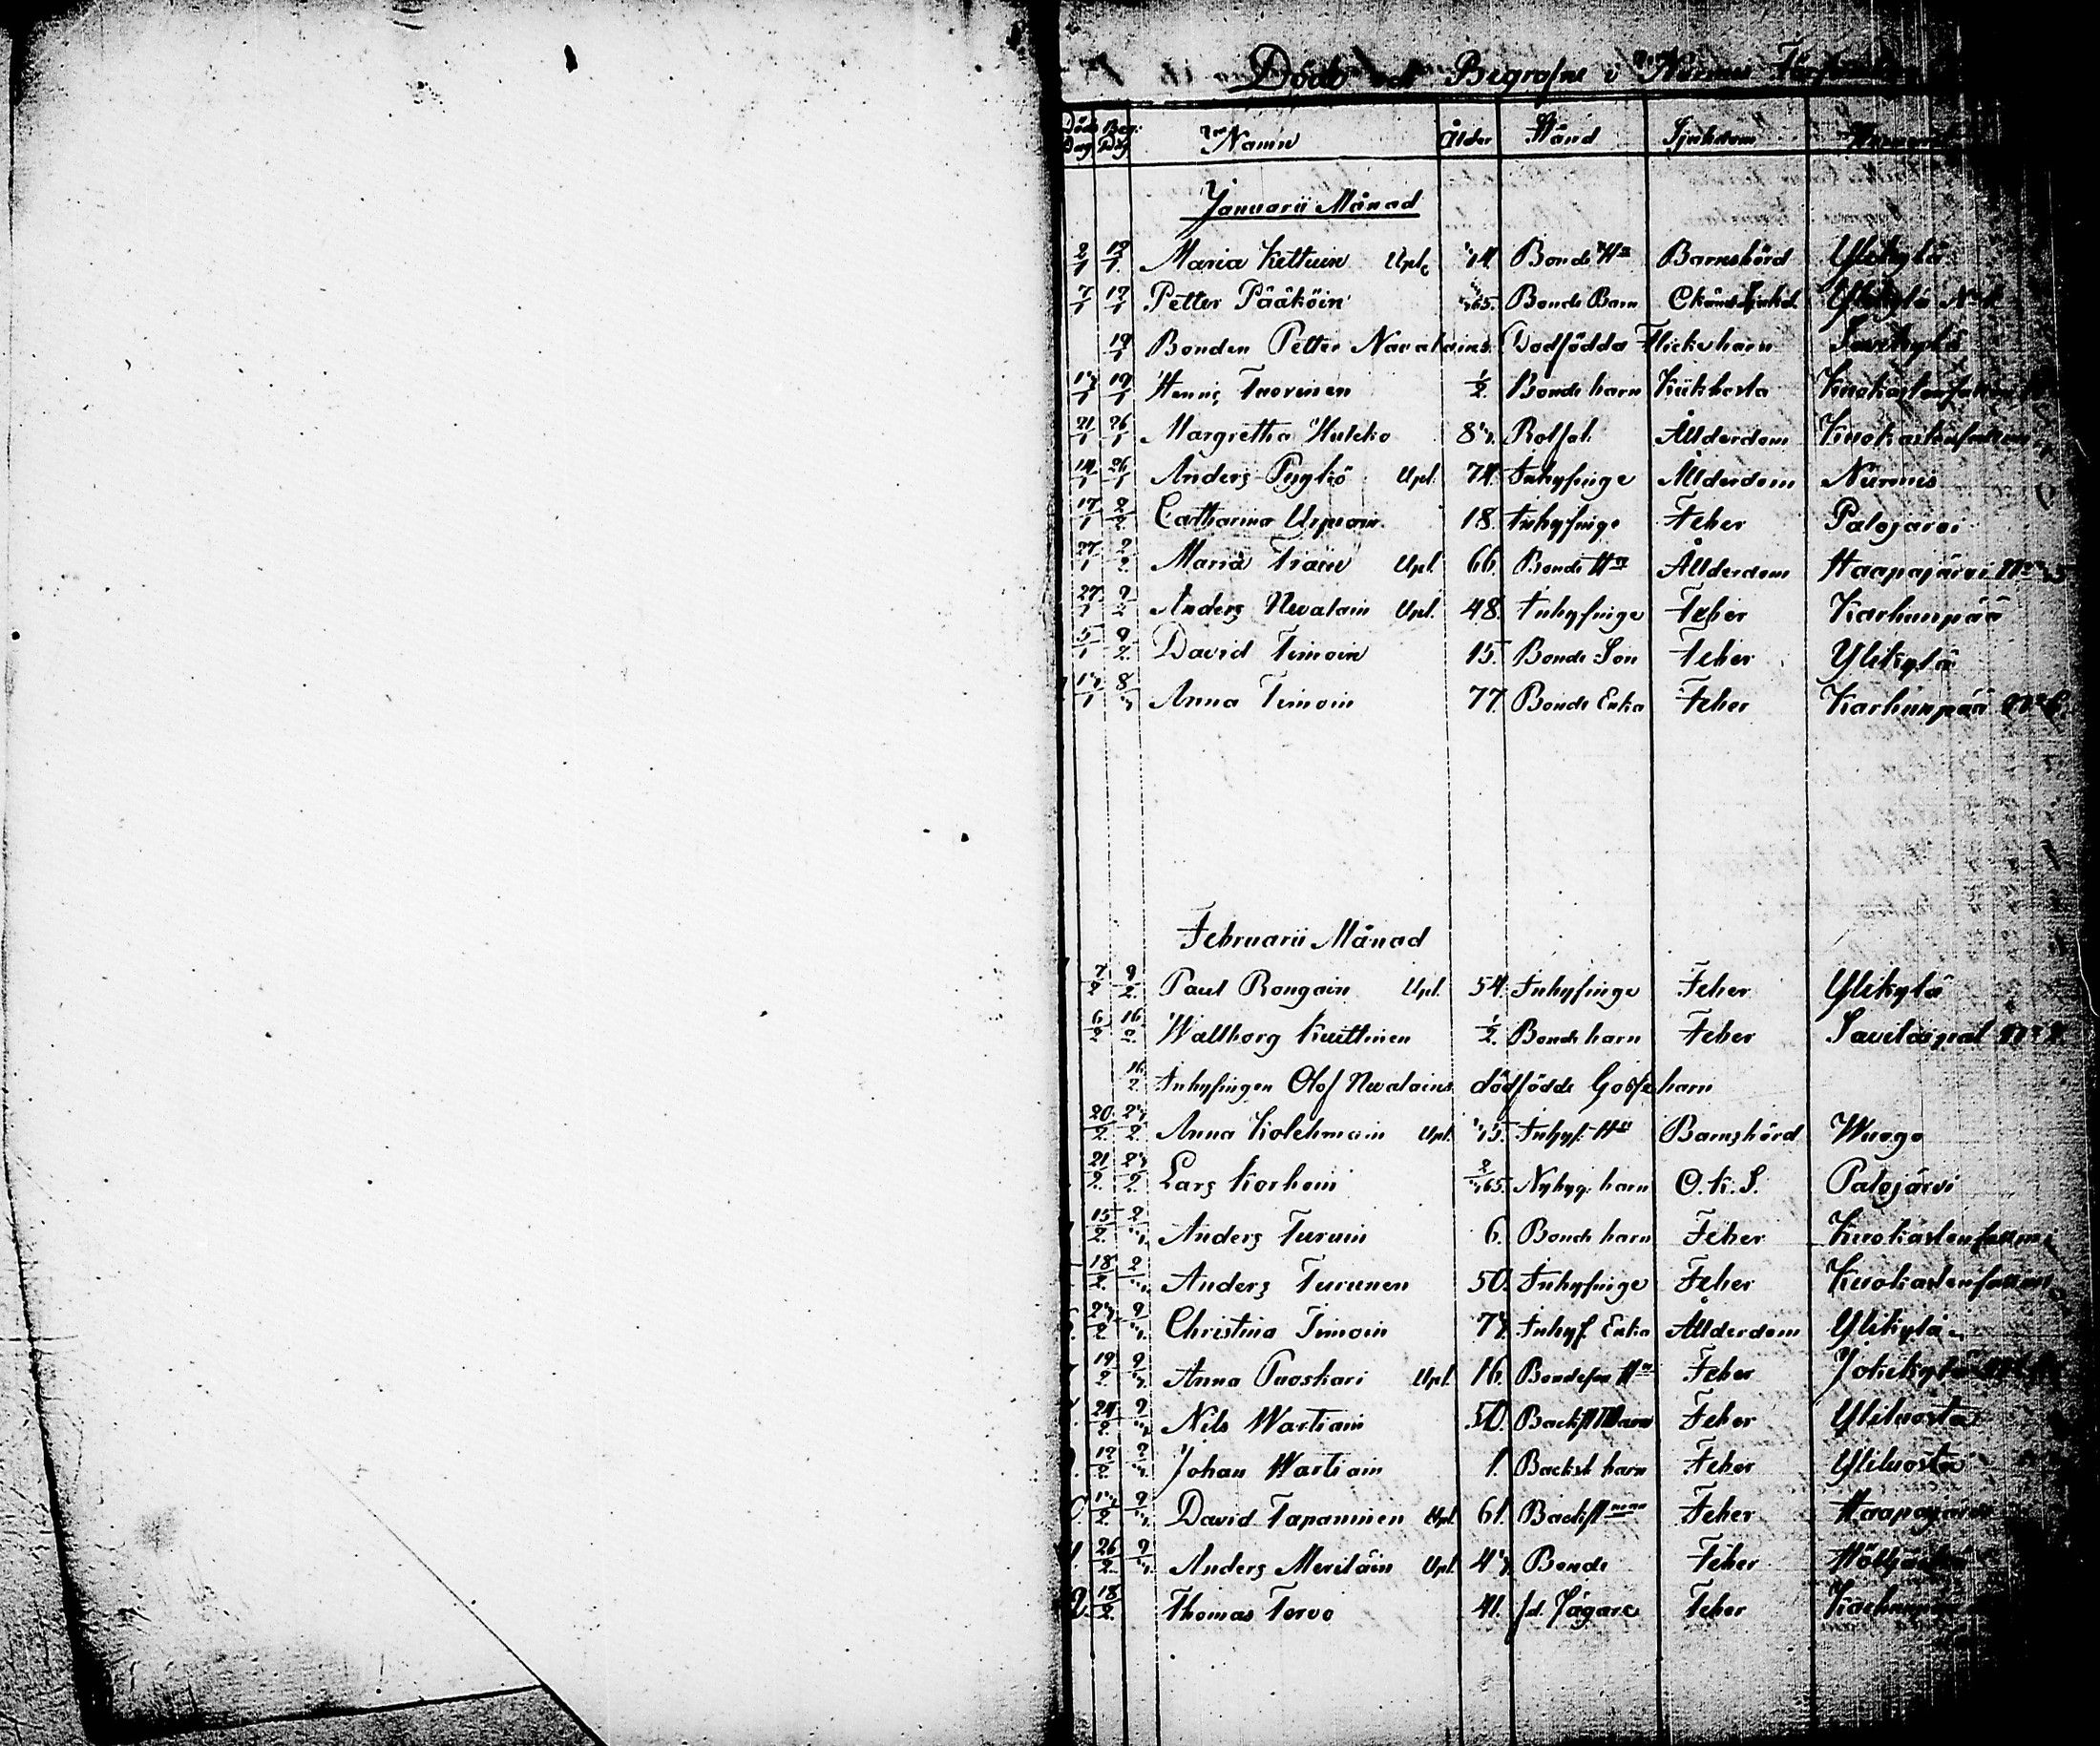 Döde och Begrafne i Nurmis
Död Dag Beg: Dag Namn Ålder Stånd Sjukdom
Januarii Månad
2/1 12/1 Maria Kettuin Upl. 34 Bonde Hu Barnsbörd Ylikylä
7/1 12/1 Petter Pääköin 3/365. Bonde Barn Okänd Sjukd. Ylikylä
19/1 Bonden Petter Navalains Dödfödda Flickebarn Savikylä
13/1 19/1 Henric Tuovinen 1/2. Bonde barn Kikhosta Kuokastenfallomi
21/1 26/1 Margretha Hulcko 83. Rotfat. Ållderdom Kuokastenfallomi
14/1 26/1 Anders Pyykö Upl. 74. Inhysinge Ållderdom Nurmis
17/1 2/2 Catharina Urpoin 18. Inhysinge Feber Palojärvi
27/1 2/2 Maria Tiain Upl. 66. Bonde Hu Ållderdom Haapajärvi
27/1 9/2 Anders Nevalain Upl. 48. Inhysinge Feber Karhunpää
5/1 9/2 David Timoin 15. Bonde Son Feber Ylikylä
13/1 8/3 Anna Timoin 77. Bonde Enka Feber Karhunpää No 6.
Februarii Månad
7/2 9/2 Paul Rongain Upl. 54. Inhysinge Feber Ylikylä
6/2 16/2 Wallborg Kuittinen 1/2. Bonde barn Feber
16/2 Inhysingen Olof Nevalains dödfödde Gossebarn
20/2 23/2 Anna Kolehmain Upl. 35. Inhys: Hu Barnsbörd Wuogo
21/2 23/2 Lars Korhoin 2/365. Nybyg: barn O.K.S. Palojärvi
15/2 2/3 Anders Turuin 6. Bonde barn Feber Kuokastenfallomi
18/2 2/3 Anders Turunen 50. Inhysinge Feber Kuokastenfallomi
23/2 9/3 Christina Timoin 73. Inhys Enka Ållderdom Ylikylä
19/2 9/3 Anna Puoskari Upl. 16. Bondeson Hu Feber Jokikylä
24/2 9/3 Nils Wartiain 50. Backst Man Feber Yliluosta
12/2 9/3 Johan Wartiain 1. Backst barn Feber Yliluosta
13/2 9/3 David Tapaninen Upl. 61. Backst man Feber Haapajärvi
26/2 9/3 Anders Meriläin Upl. 43. Bonde Feber Höljäkkä
18/2 Thomas Torvo 41. fd. Jägare Feber Karhunpää